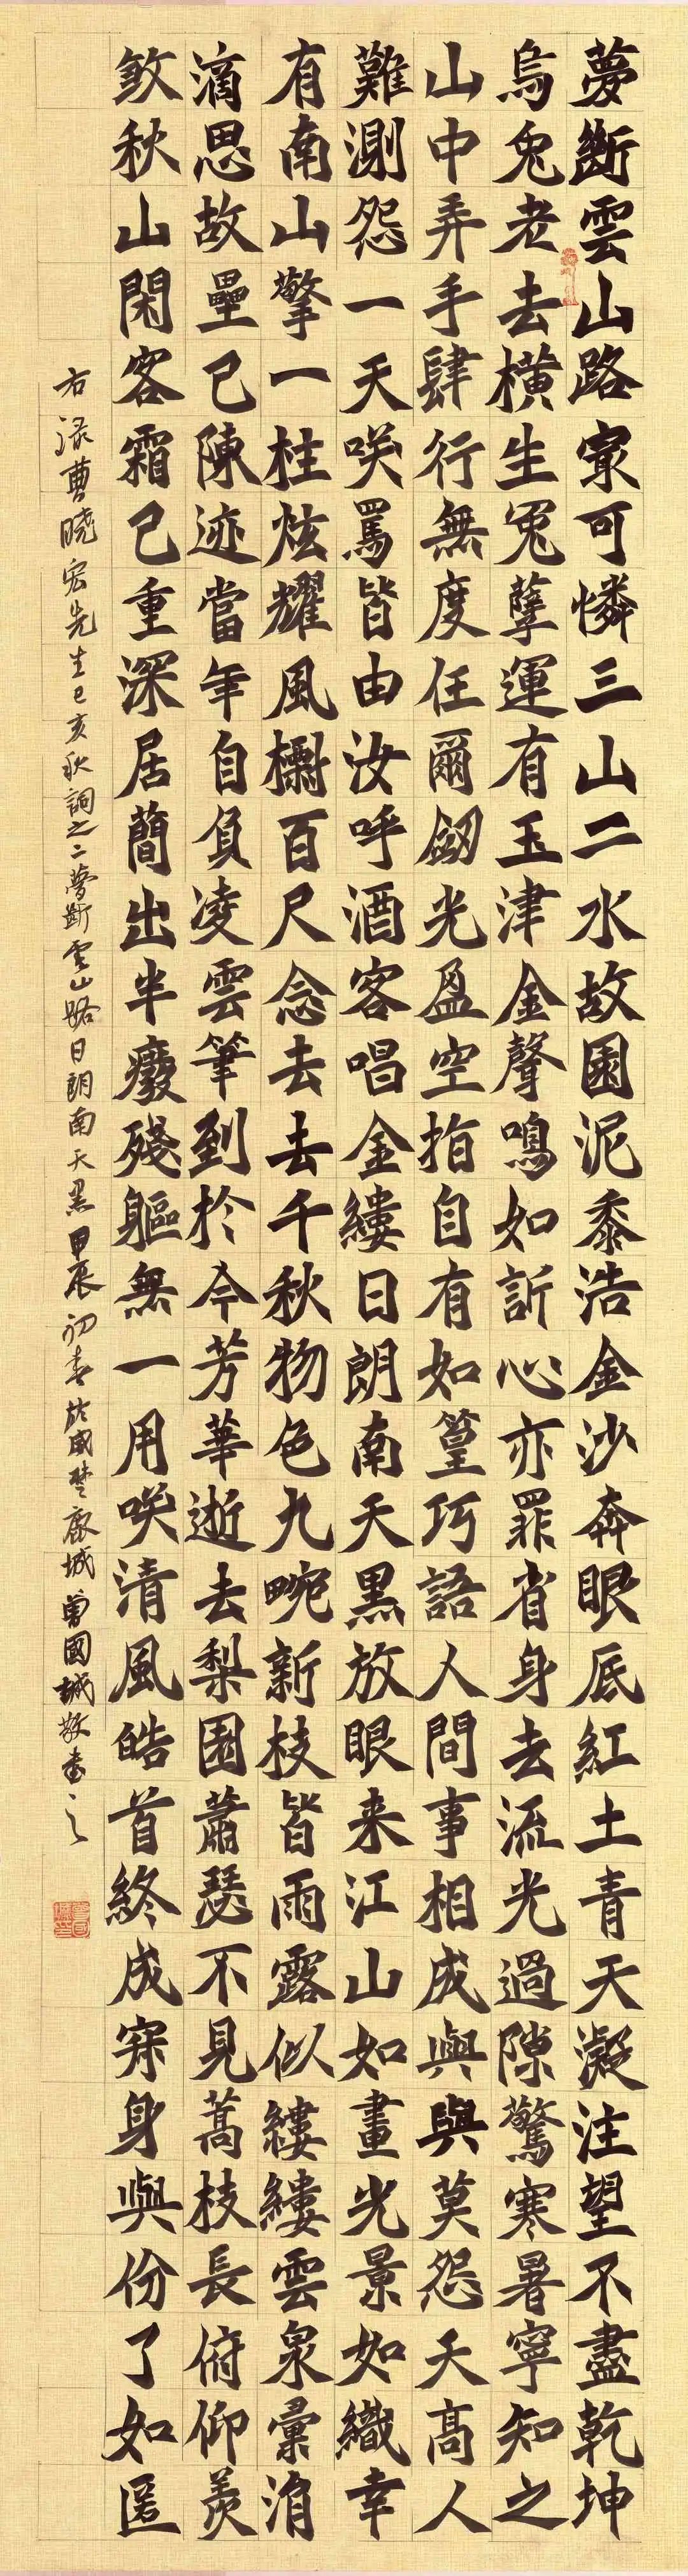 夢斷雲山路寂可憐三山二水故園泥黍浩金沙奔眼底紅土青天凝注望不盡乾坤
烏兔老去橫生冤孽運有玉津金聲鳴如訢心亦罪省身去流光過隙驚寒暑寧知之
山中弄手肆行無度任爾劒光盈空指自有如篁巧語人間事相成與與莫怨天高人
難測怨一天咲罵皆由汝呼酒客唱金縷日朗南天黑放眼来江山如畫光景如織幸
有南山擎一柱炫耀風櫥百尺念去去千秋物色九畹新枝皆雨露似縷縷雲泉彙涓
滴思故壘已陳迹當年自負凌雲筆到於今芳華逝去梨園蕭瑟不見蒿枝長俯仰羨
敛秋山閑客霜已重深居蕳出半癈殘軀無一用咲清風皓首終成寀身與份了如匿
右录曹曉宏先生己亥秋詞之二夢斷雲山路日朗南天黑甲辰初春於威楚鹿城曾國城敬書之